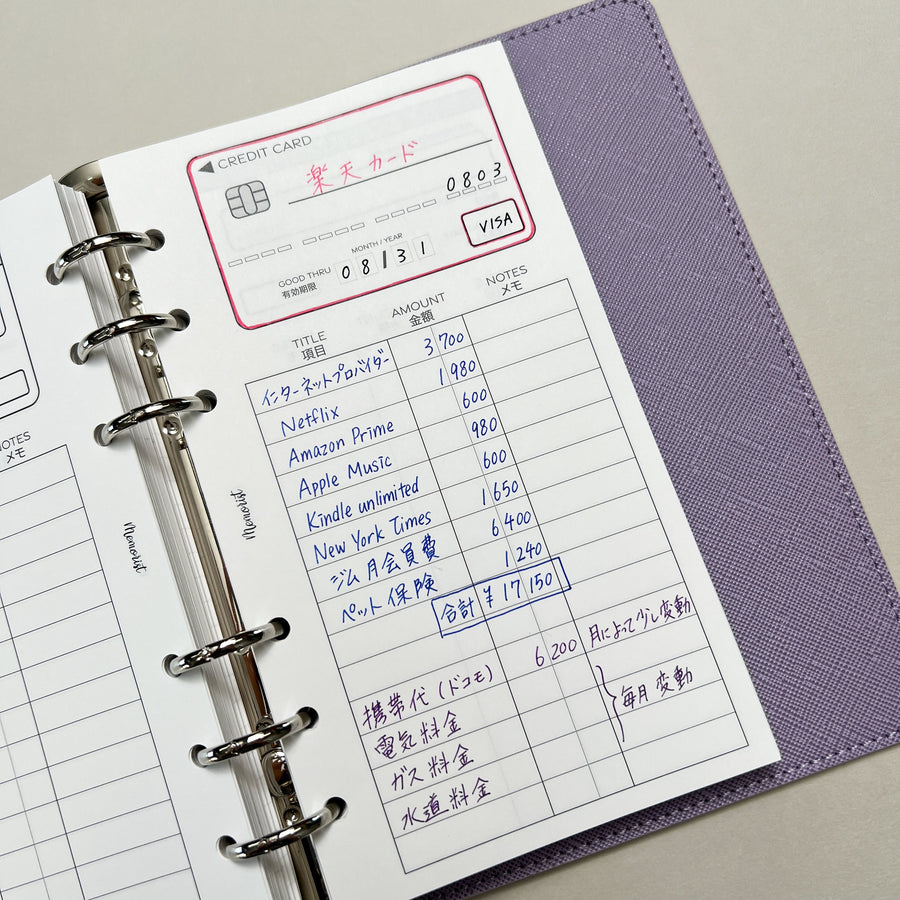 CREDIT CARD
楽天カード
0803
VISA
MONTH / YEAR
GOOD THRU
有効期限
08/31
TITLE
項目
AMOUNT
金額
NOTES
メモ
インターネットプロバイダー 3 700
Netflix 1 980
Amazon Prime 600
Apple Music 980
Kindle unlimited 600
New York Times 1 650
ジム月会員費 6 400
ペット保険 1 240
合計 ¥ 17 150
携帯代(ドコモ) 6 200 月によって少し変動
電気料金
ガス料金
水道料金
毎月変動
Memorist
Memorist
NOTES
メモ